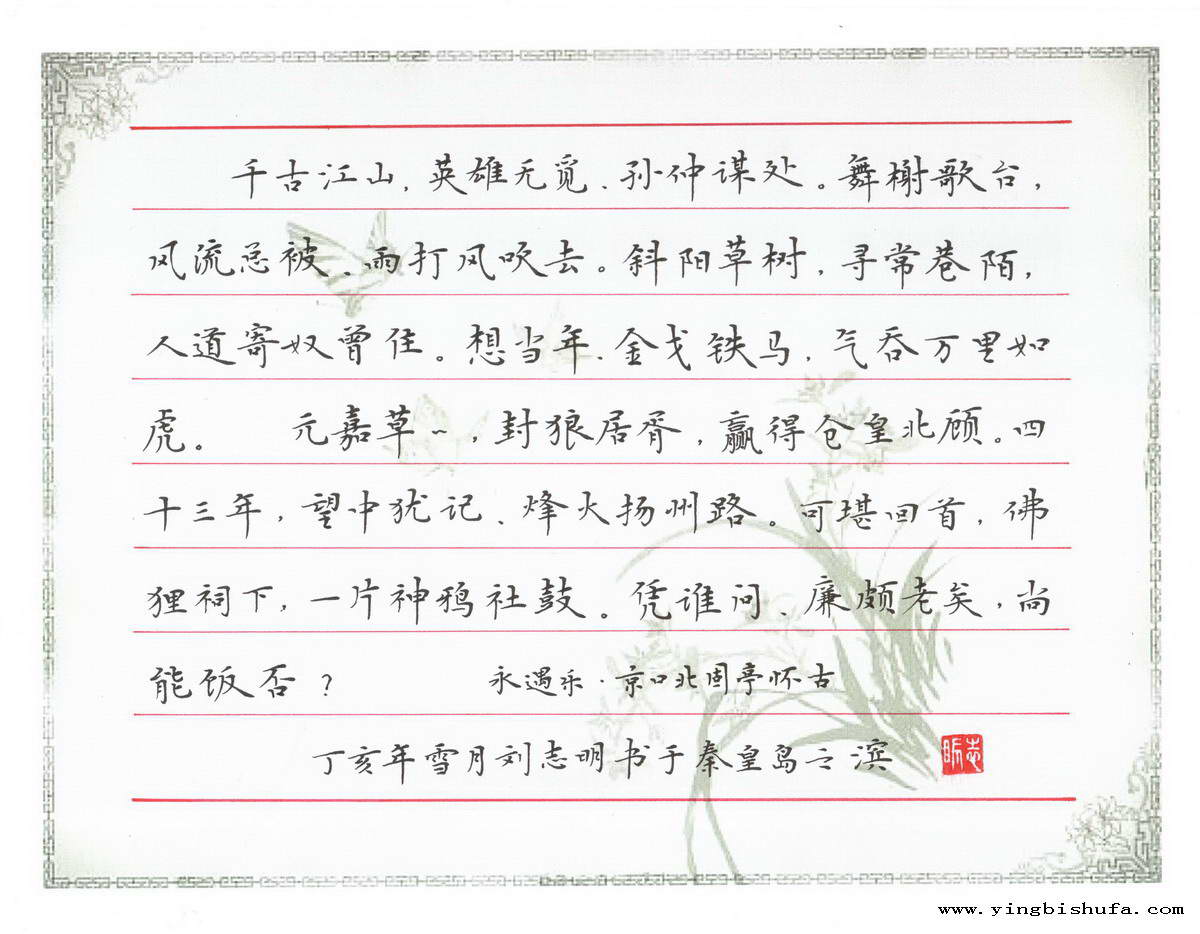 千古江山，英雄无觅、孙仲谋处。舞榭歌台，
风流总被、雨打风吹去。斜阳草树，寻常巷陌，
人道寄奴曾住。想当年、金戈铁马，气吞万里如
虎。 元嘉草草，封狼居胥，赢得仓皇北顾。四
十三年，望中犹记、烽火扬州路。可堪回首，佛
狸祠下，一片神鸦社鼓。凭谁问、廉颇老矣，尚
能饭否？ 永遇乐·京口北固亭怀古
丁亥年雪月刘志明书于秦皇岛之滨
志明
www.yingbishufa.com